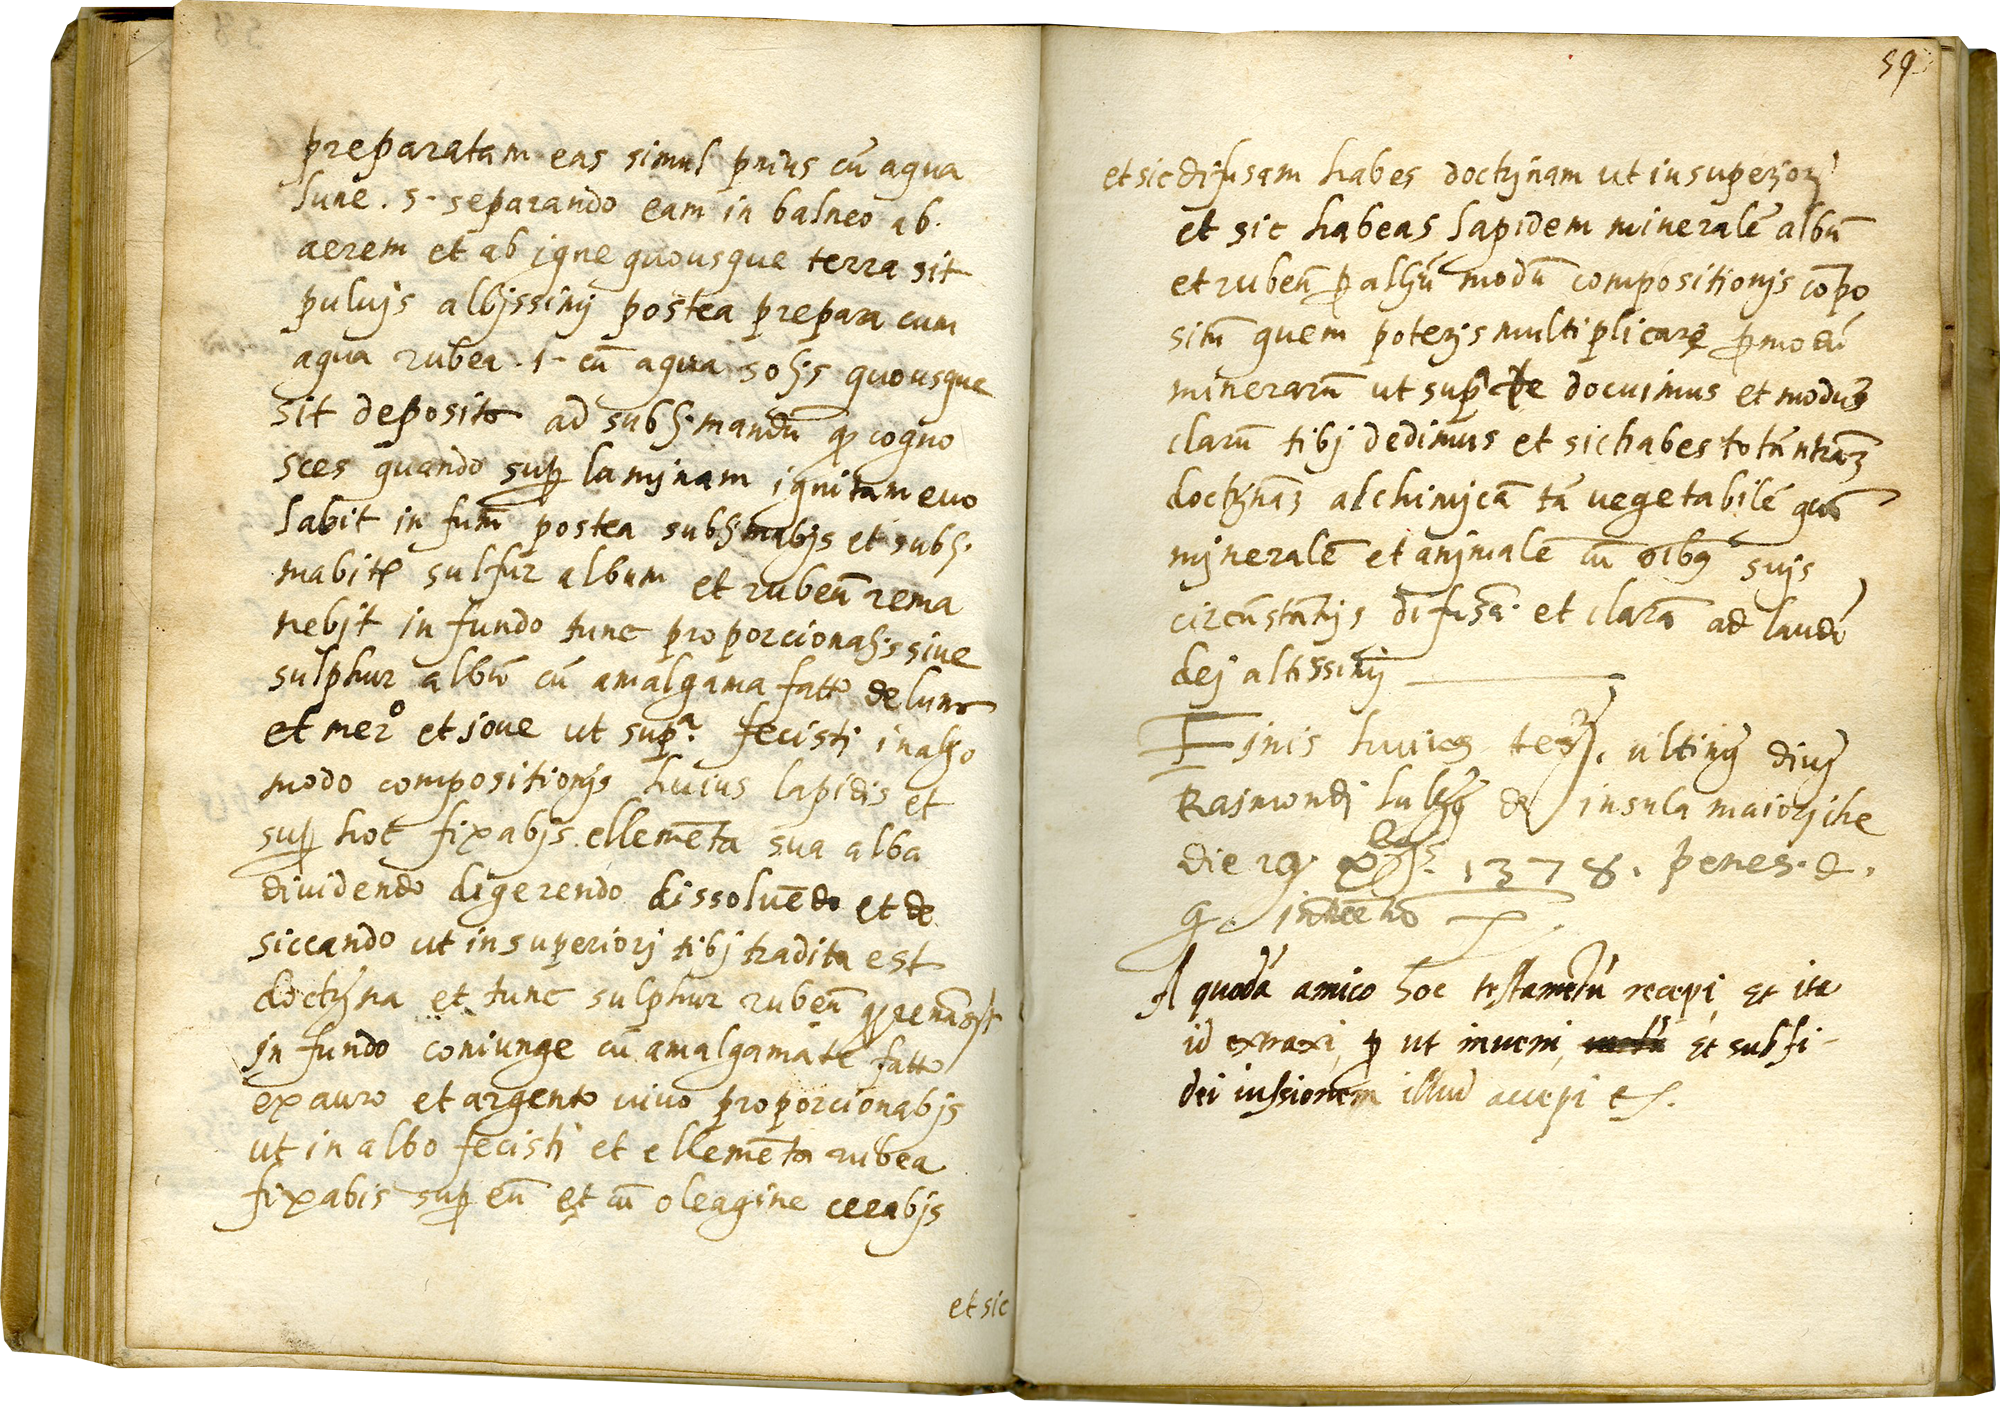 preparatam eas simul prius cū aqua
lune . 5 . separando eam in balneo ab .
aerem et ab igne quousque terra sit
puluis albissimj postea prepara cum
aqua rubea . 1 - cū aqua solis quousque
sit deposito ad subli mandū cogno
sces quando sup laminam ignitam euo
labit in fumū postea sublimabis et subli
mabit sulfur album et rubeū rema
nebit in fundo tunc proporcionalis siue
sulphur albū cū amalgama fatto de luna
et merº et ioue ut supª. fecisti in alio
modo compositionis huius lapidis et
sup hoc fixabis ellemēta sua alba
diuidendo digerendo dissoluēdo et de
siccando ut in superiorj tibj tradita est
doctrina et tunc sulphur rubeū
in fundo coniunge cū amalgamate fatto
ex auro et argento uiuo proporcionabis
ut in albo fecisti et ellemēta rubea
fixabis sup eū et cū oleagine cerabis
et sic
59
et sic difusam habes doctrinam ut in superiori
et sic habeas lapidem minerale albū
et rubeū p aliū modū compositionis cōpo
sitū quem poteris multiplicare p modū
minerarū ut sup docuimus et modus
clarū tibj dedimus et sic habes totā nrāz
doctrināz alchimicā tā vegetabilē quā
minerale et animale cū oibus suis
circūstātijs difusā . et clarā ad laudē
dej altissimj
Finis huius . ultimū diuj
Raimondj Lulij de insula maioriche
die 29 1378 . penes . d .
q .
A quodā amico hoc testamētū recepi, et ita
id extraxi, p ut inveni, et sub fi-
dei iussionem illud accepi